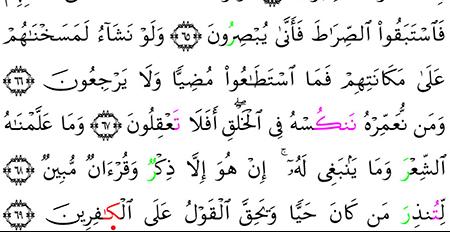 فَٱسْتَبَقُوا۟ ٱلصِّرَٰطَ فَأَنَّىٰ يُبْصِرُونَ ٦٥ وَلَوْ نَشَآءُ لَمَسَخْنَٰهُمْ
عَلَىٰ مَكَانَتِهِمْ فَمَا ٱسْتَطَٰعُوا۟ مُضِيًّا وَلَا يَرْجِعُونَ ٦٦
وَمَن نُّعَمِّرْهُ نَنكُسْهُ فِى ٱلْخَلْقِۖ أَفَلَا تَعْقِلُونَ ٦٧ وَمَا عَلَّمْنَٰهُ
ٱلشِّعْرَ وَمَا يَنۢبَغِى لَهُۥٓۚ إِنْ هُوَ إِلَّا ذِكْرٌ وَقُرْءَانٌ مُّبِينٌ ٦٨
لِّتُنذِرَ مَن كَانَ حَيًّا وَيَحِقَّ ٱلْقَوْلُ عَلَى ٱلْكَٰفِرِينَ ٦٩